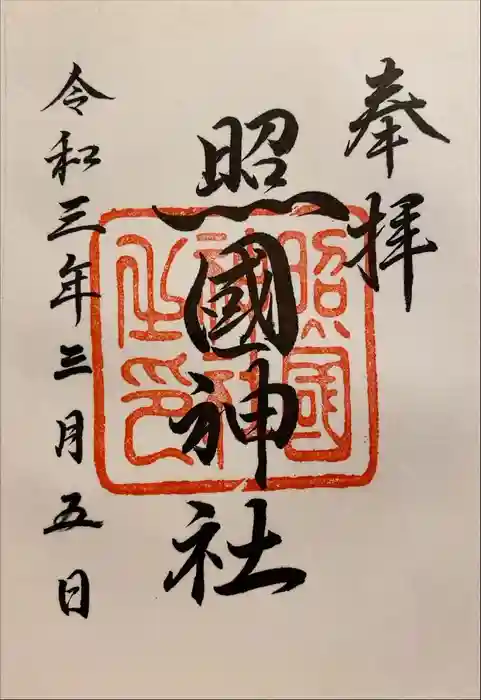 奉拝
照國神社
照國
神社
之印
令和三年三月五日